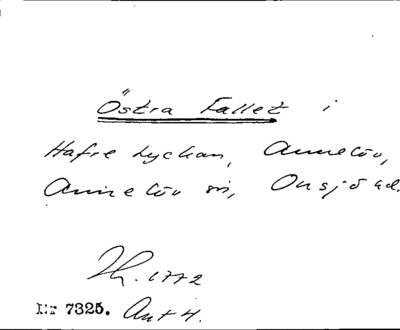 Östra Fallet i
Hafre Lyckan, Annelöv,
Annelöv sn, Onsjö hd.
1772
Nr 7325. Akt 4.